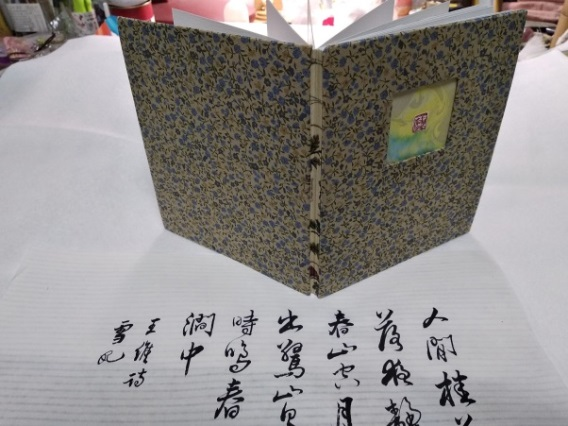 人閒桂
落夜靜
春山空月
出驚山鳥
時鳴春
澗中
王維詩
雪